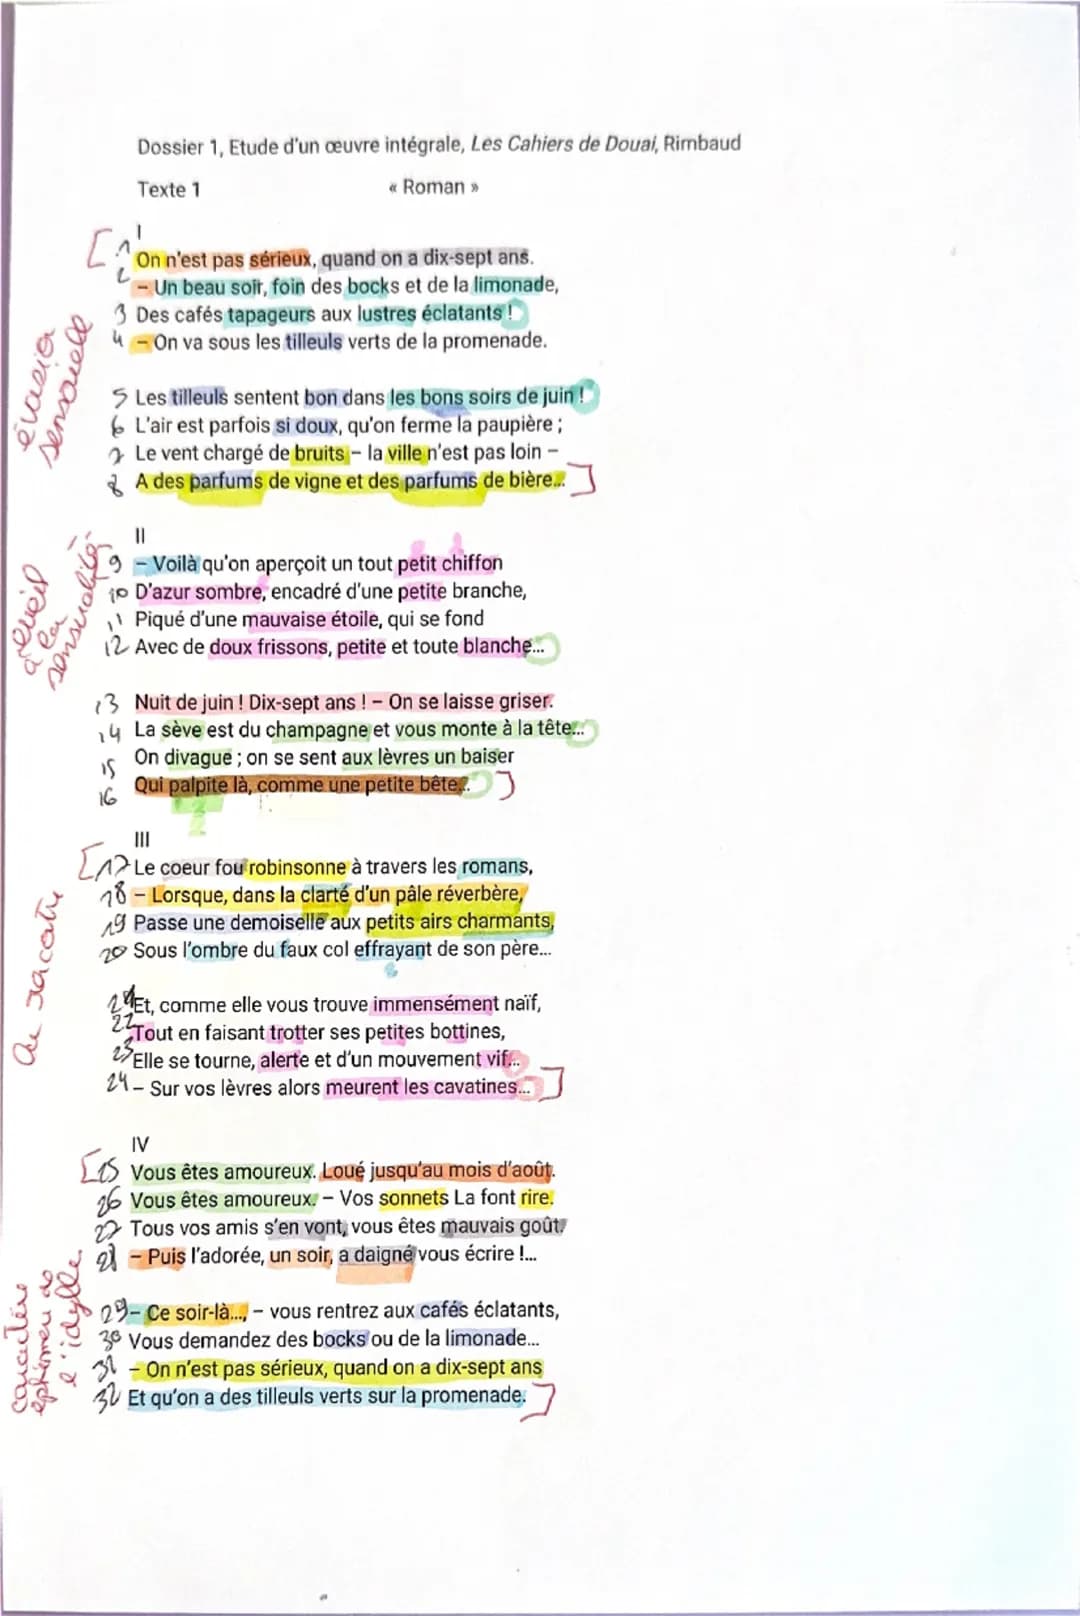 Dossier 1, Etude d'un œuvre intégrale, Les Cahiers de Douai, Rimbaud
Texte 1 « Roman »
évasion sensorielle
I
[1 On n'est pas sérieux, quand on a dix-sept ans.
2 – Un beau soir, foin des bocks et de la limonade,
3 Des cafés tapageurs aux lustres éclatants !
4 – On va sous les tilleuls verts de la promenade.
5 Les tilleuls sentent bon dans les bons soirs de juin !
6 L'air est parfois si doux, qu'on ferme la paupière ;
7 Le vent chargé de bruits – la ville n'est pas loin –
8 A des parfums de vigne et des parfums de bière... ]
éveil à la sensualité
II
[9 – Voilà qu'on aperçoit un tout petit chiffon
10 D'azur sombre, encadré d'une petite branche,
11 Piqué d'une mauvaise étoile, qui se fond
12 Avec de doux frissons, petite et toute blanche...
13 Nuit de juin ! Dix-sept ans ! – On se laisse griser.
14 La sève est du champagne et vous monte à la tête...
15 On divague ; on se sent aux lèvres un baiser
16 Qui palpite là, comme une petite bête... ]
III
[17 Le coeur fou robinsonne à travers les romans,
18 – Lorsque, dans la clarté d'un pâle réverbère,
19 Passe une demoiselle aux petits airs charmants,
20 Sous l'ombre du faux col effrayant de son père...
21 Et, comme elle vous trouve immensément naïf,
22 Tout en faisant trotter ses petites bottines,
23 Elle se tourne, alerte et d'un mouvement vif...
24 – Sur vos lèvres alors meurent les cavatines... ]
IV
[25 Vous êtes amoureux. Loué jusqu'au mois d'août.
26 Vous êtes amoureux. – Vos sonnets La font rire.
27 Tous vos amis s'en vont, vous êtes mauvais goût.
28 – Puis l'adorée, un soir, a daigné vous écrire !...
caractère éphémère de l'idylle
29 – Ce soir-là..., – vous rentrez aux cafés éclatants,
30 Vous demandez des bocks ou de la limonade...
31 – On n'est pas sérieux, quand on a dix-sept ans
32 Et qu'on a des tilleuls verts sur la promenade. ]